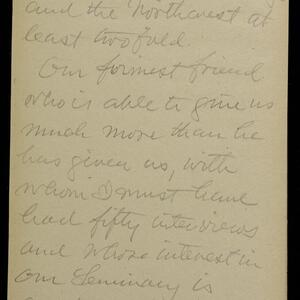 and the Northwest at
least twofold.
Our formest friend
who is able to give us
much more than he
has given us, with
whom I must have
had fifty interviews
and whose interest in
our Seminary is